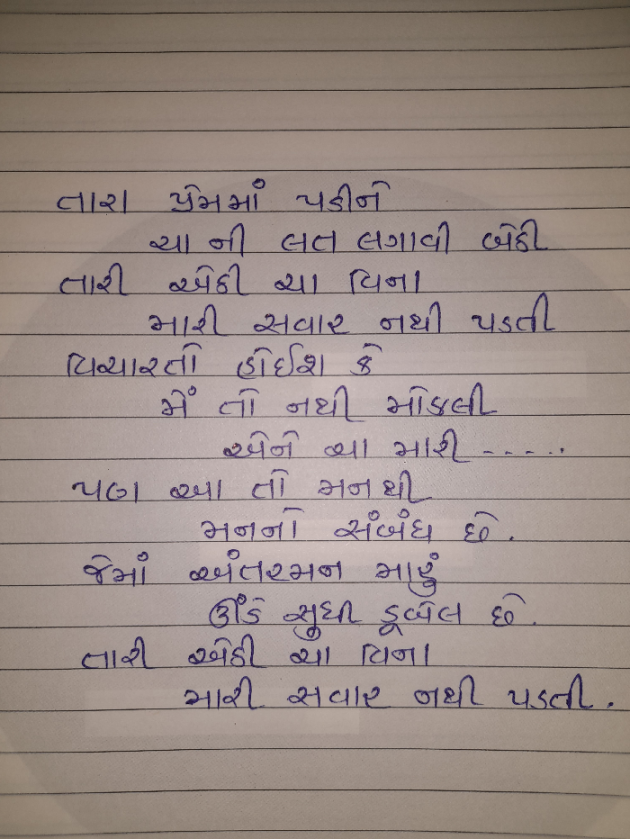 તારા પ્રેમમાં પડીને
ચા ની લત લગાવી બેઠી
તારી એઠી ચા વિના
મારી સવાર નથી પડતી
વિચારતો હોઈશ કે
મેં તો નથી મોકલી
એને ચા મારી -----.
પણ આ તો મનથી
મનનો સંબંધ છે.
જેમાં અંતરમન મારું
ઊંડે સુધી ડૂબેલ છે.
તારી એઠી ચા વિના
મારી સવાર નથી પડતી.